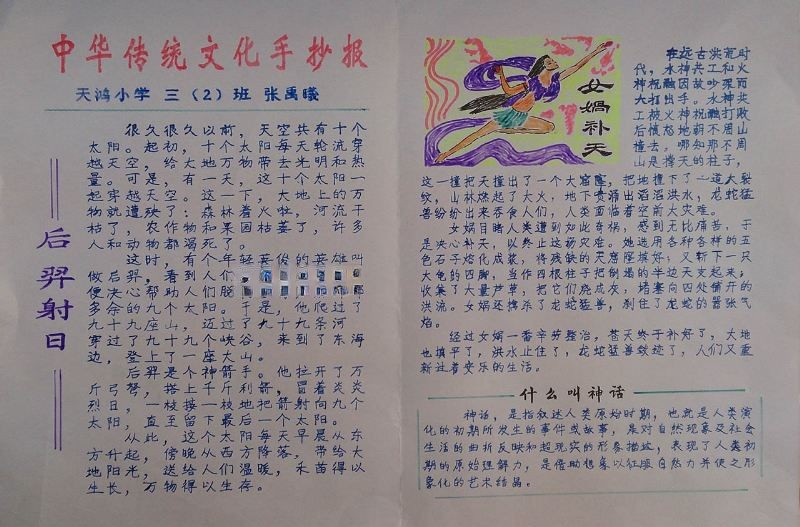 中华传统文化手抄报
天鸿小学 三（2）班 张禹曦
后羿射日
很久很久以前，天空共有十个
太阳。起初，十个太阳每天轮流穿
越天空，给大地万物带去光明和热
量。可是，有一天，这十个太阳一
起穿越天空。这一下，大地上的万
物就遭殃了：森林着火啦，河流干
枯了，农作物和果园枯萎了，许多
人和动物都渴死了。
这时，有个年轻英俊的英雄叫
做后羿，看到人们
便决心帮助人们脱
多余的九个太阳。于是，他爬过了
九十九座山，迈过了九十九条河
穿过了九十九个峡谷，来到了东海
边，登上了一座大山。
后羿是个神箭手。他拉开了万
斤弓弩，搭上千斤利箭，冒着炎炎
烈日，一枝接一枝地把箭射向九个
太阳，直至留下最后一个太阳。
从此，这个太阳每天早晨从东
方升起，傍晚从西方降落，带给大
地阳光，送给人们温暖，禾苗得以
生长，万物得以生存。
女娲补天
在远古洪荒时
代，水神共工和火
神祝融因故吵架而
大打出手。水神共
工被火神祝融打败
后愤怒地朝不周山
撞去，哪知那不周
山是撑天的柱子，
这一撞把天撞出了一个大窟窿，把地撞下了一道大裂
纹，山林燃起了大火，地下贲涌出滔滔洪水，龙蛇猛
兽纷纷出来吞食人们，人类面临着空前大灾难。
女娲目睹人类遭到如此奇祸，感到无比痛苦，于
是决心补天，以终止这场灾难。她选用各种各样的五
色石子熔化成浆，将残缺的天窟窿填好；又斩下一只
大龟的四脚，当作四根柱子把倒塌的半边天支起来；
收集了大量芦草，把它们烧成灰，堵塞向四处铺开的
洪流。女娲还擒杀了龙蛇猛兽，刹住了龙蛇的嚣张气
焰。
经过女娲一番辛劳整治，苍天终于补好了，大地
也填平了，洪水止住了，龙蛇猛兽敛迹了，人们又重
新过着安乐的生活。
什么叫神话
神话，是指叙述人类原始时期，也就是人类演
化的初期所发生的事件或故事，是对自然现象及社会
生活的曲折反映和超现实的形象描述，表现了人类初
期的原始理解力，是借助想象以征服自然力并使之形
象化的艺术结晶。